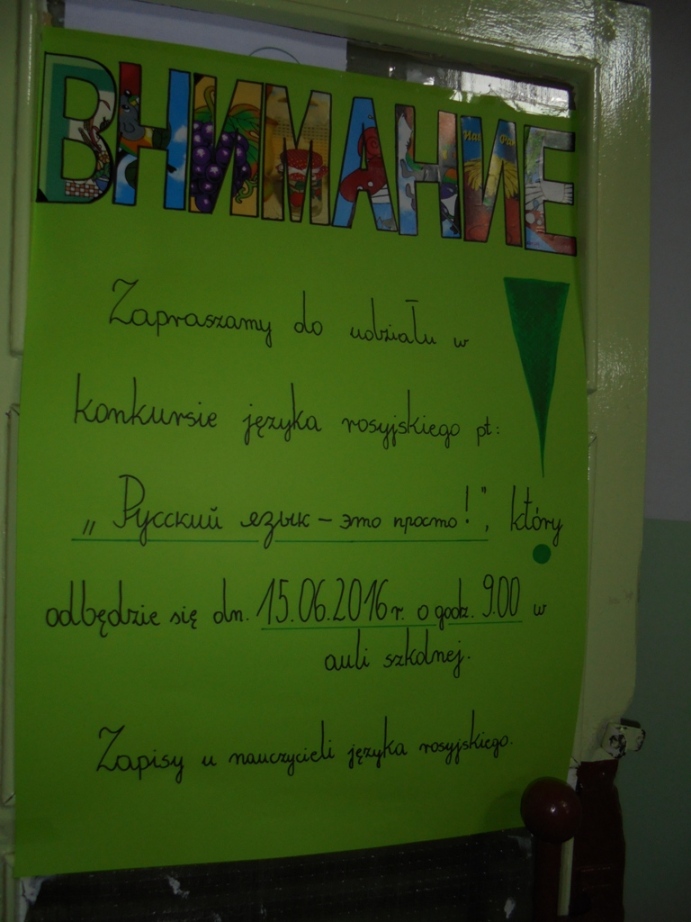 ВНИМАНИЕ!
Zapraszamy do udziału w
konkursie języka rosyjskiego pt:
„Русский язык – это просто!", który
odbędzie się dn. 15.06.2016r. o godz. 9.00 w
auli szkolnej.
Zapisy u nauczycieli języka rosyjskiego.